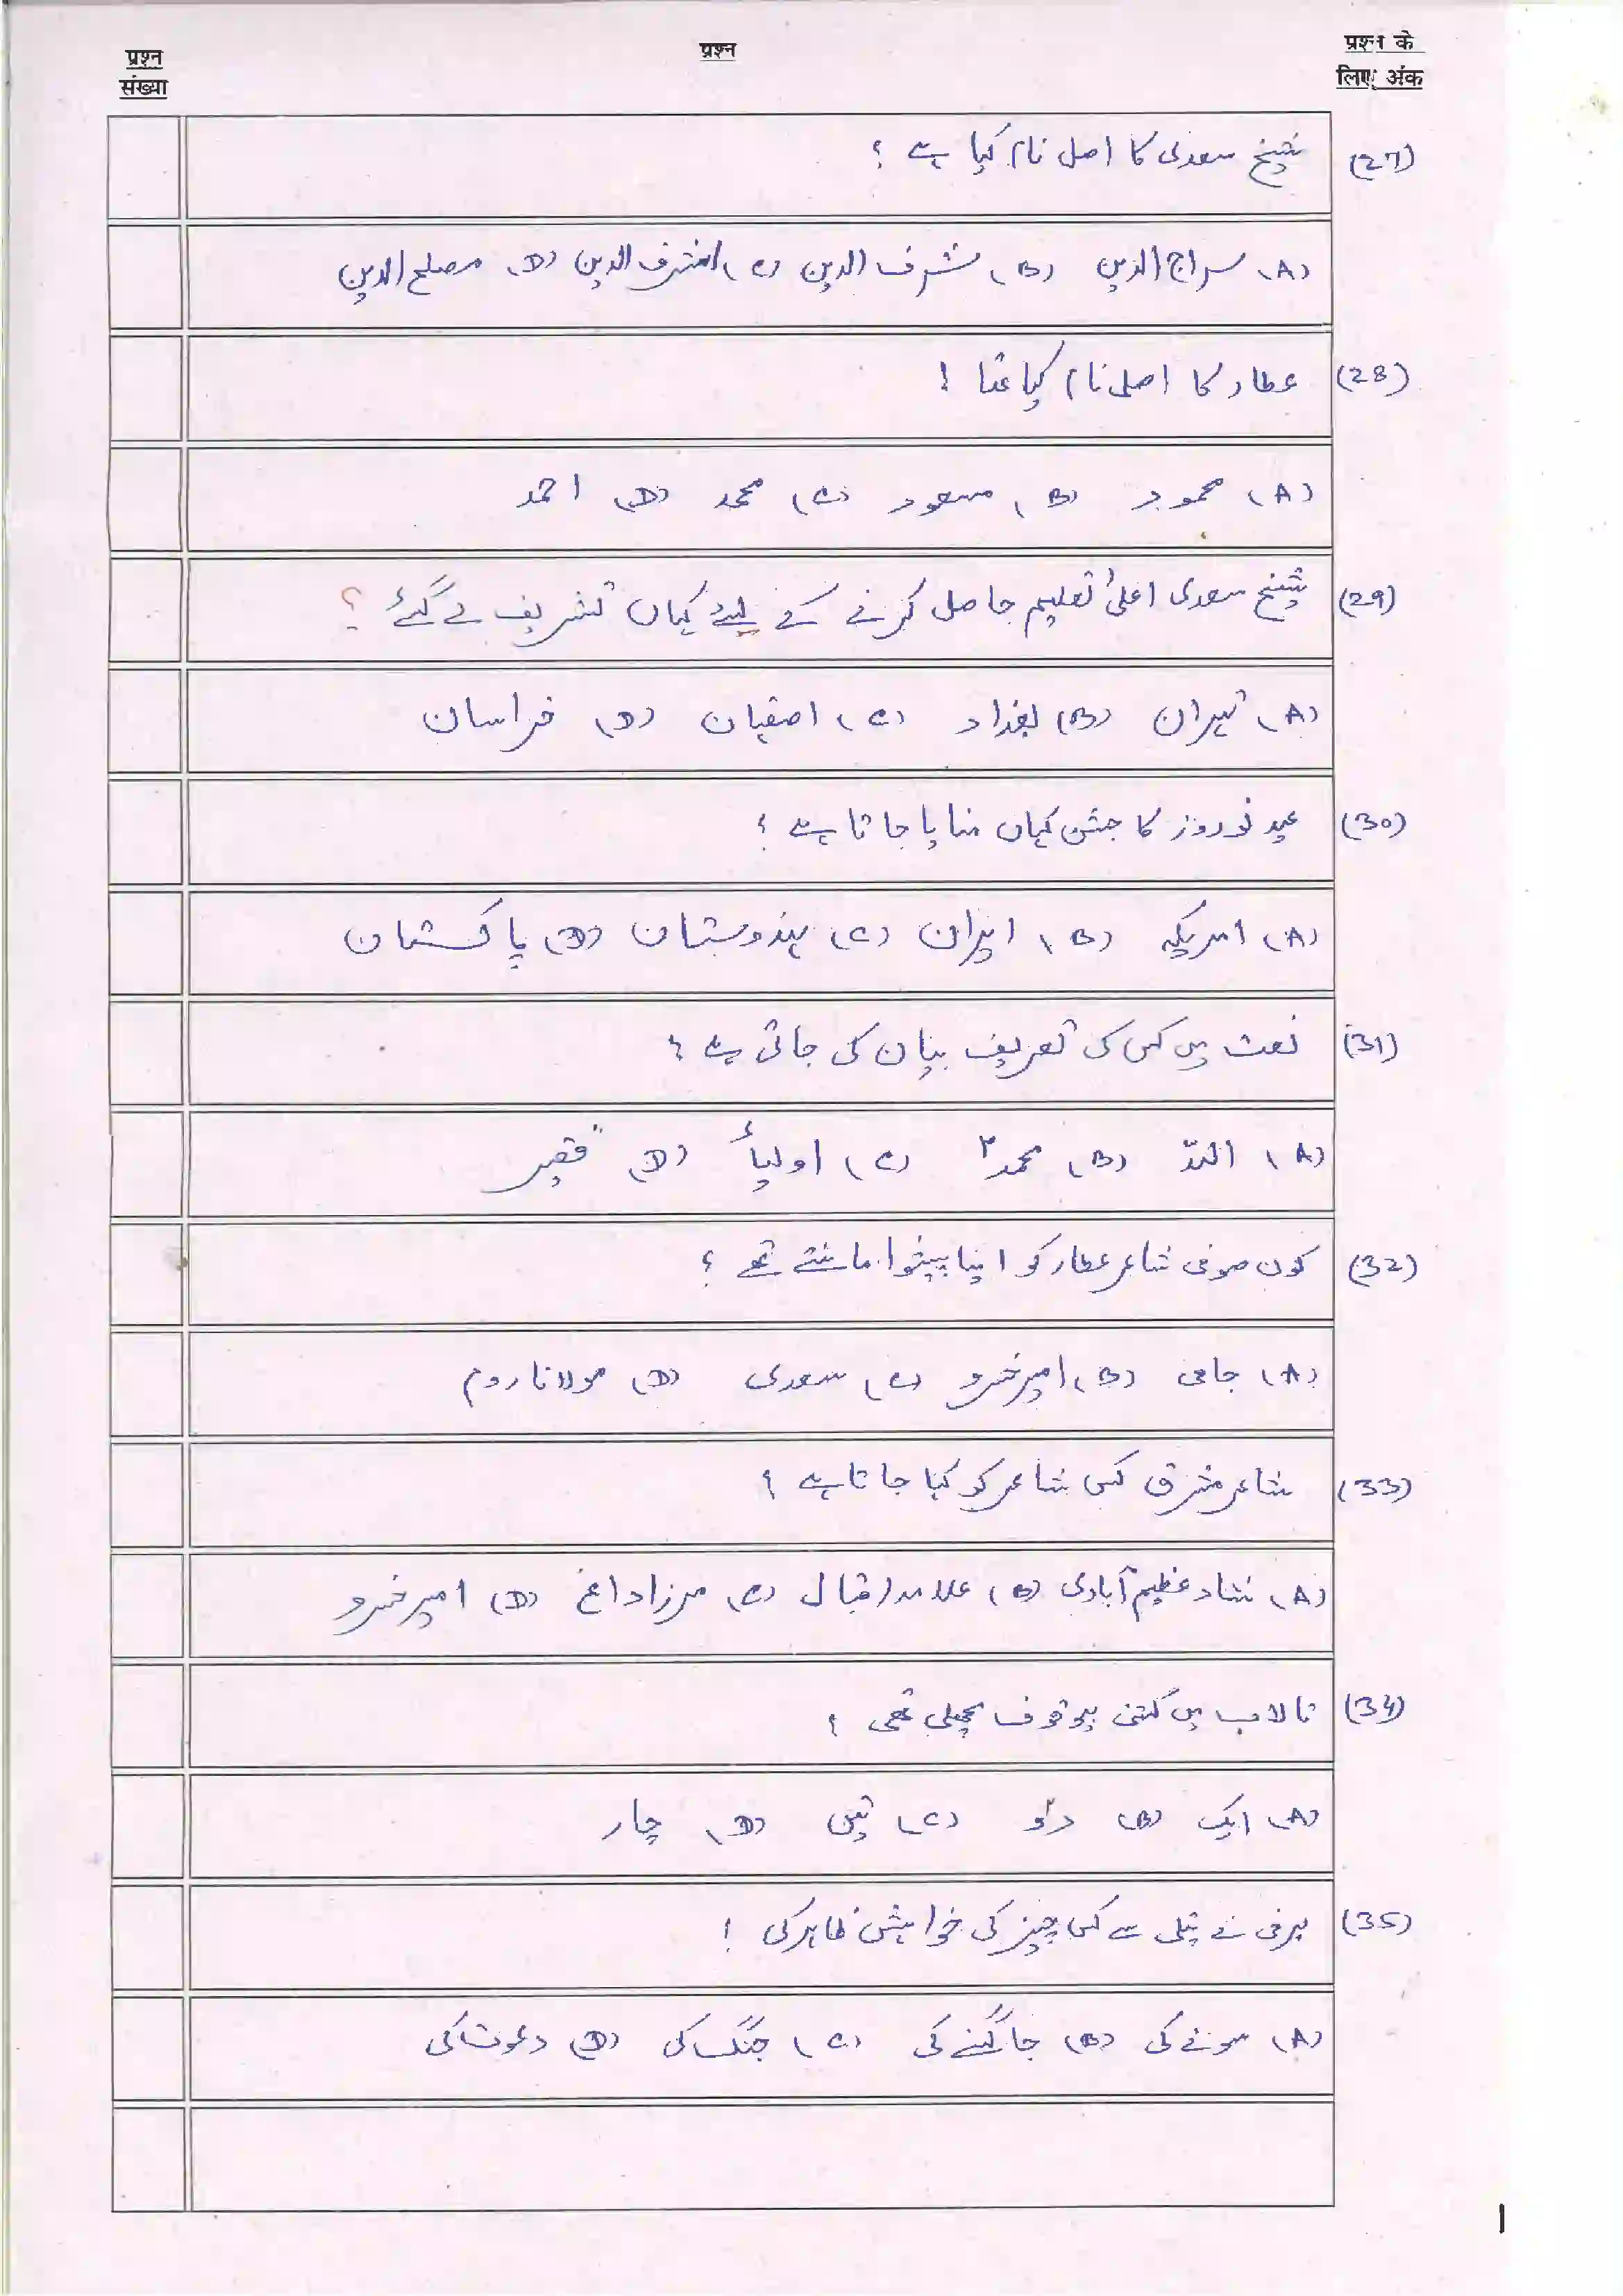 प्रश्न संख्या
प्रश्न
प्रश्न के लिए अंक
(27) شیخ سعدی کا اصل نام کیا ہے ؟
(A) سراج الدین (B) شرف الدین (C) اشرف الدین (D) مصلح الدین
(28) عطار کا اصلی نام کیا تھا ؟
(A) محمود (B) مسعود (C) محمد (D) احمد
(29) شیخ سعدی اعلیٰ تعلیم حاصل کرنے کے لیئے کہاں تشریف لے گئے ؟
(A) تہران (B) بغداد (C) اصفہان (D) خراسان
(30) عید نوروز کا جشن کہاں منایا جاتا ہے ؟
(A) امریکہ (B) ایران (C) ہندوستان (D) پاکستان
(31) نعت میں کس کی تعریف بیان کی جاتی ہے ؟
(A) اللہ (B) محمدؐ (C) اولیاء (D) فقیر
(32) کون صوفی شاعر عطار کو اپنا پیشوا مانتے تھے ؟
(A) جامی (B) امیر خسرو (C) سعدی (D) مولانا روم
(33) شاعر مشرق کس شاعر کو کہا جاتا ہے ؟
(A) شاد عظیم آبادی (B) علامہ اقبال (C) مرزا داغ (D) امیر خسرو
(34) تالاب میں کتنی بیوقوف مچھلی تھی ؟
(A) ایک (B) دو (C) تین (D) چار
(35) برفی نے بلی سے کس چیز کی خواہش ظاہر کی ؟
(A) سونے کی (B) جاگنے کی (C) جنگ کی (D) دعوت کی
1